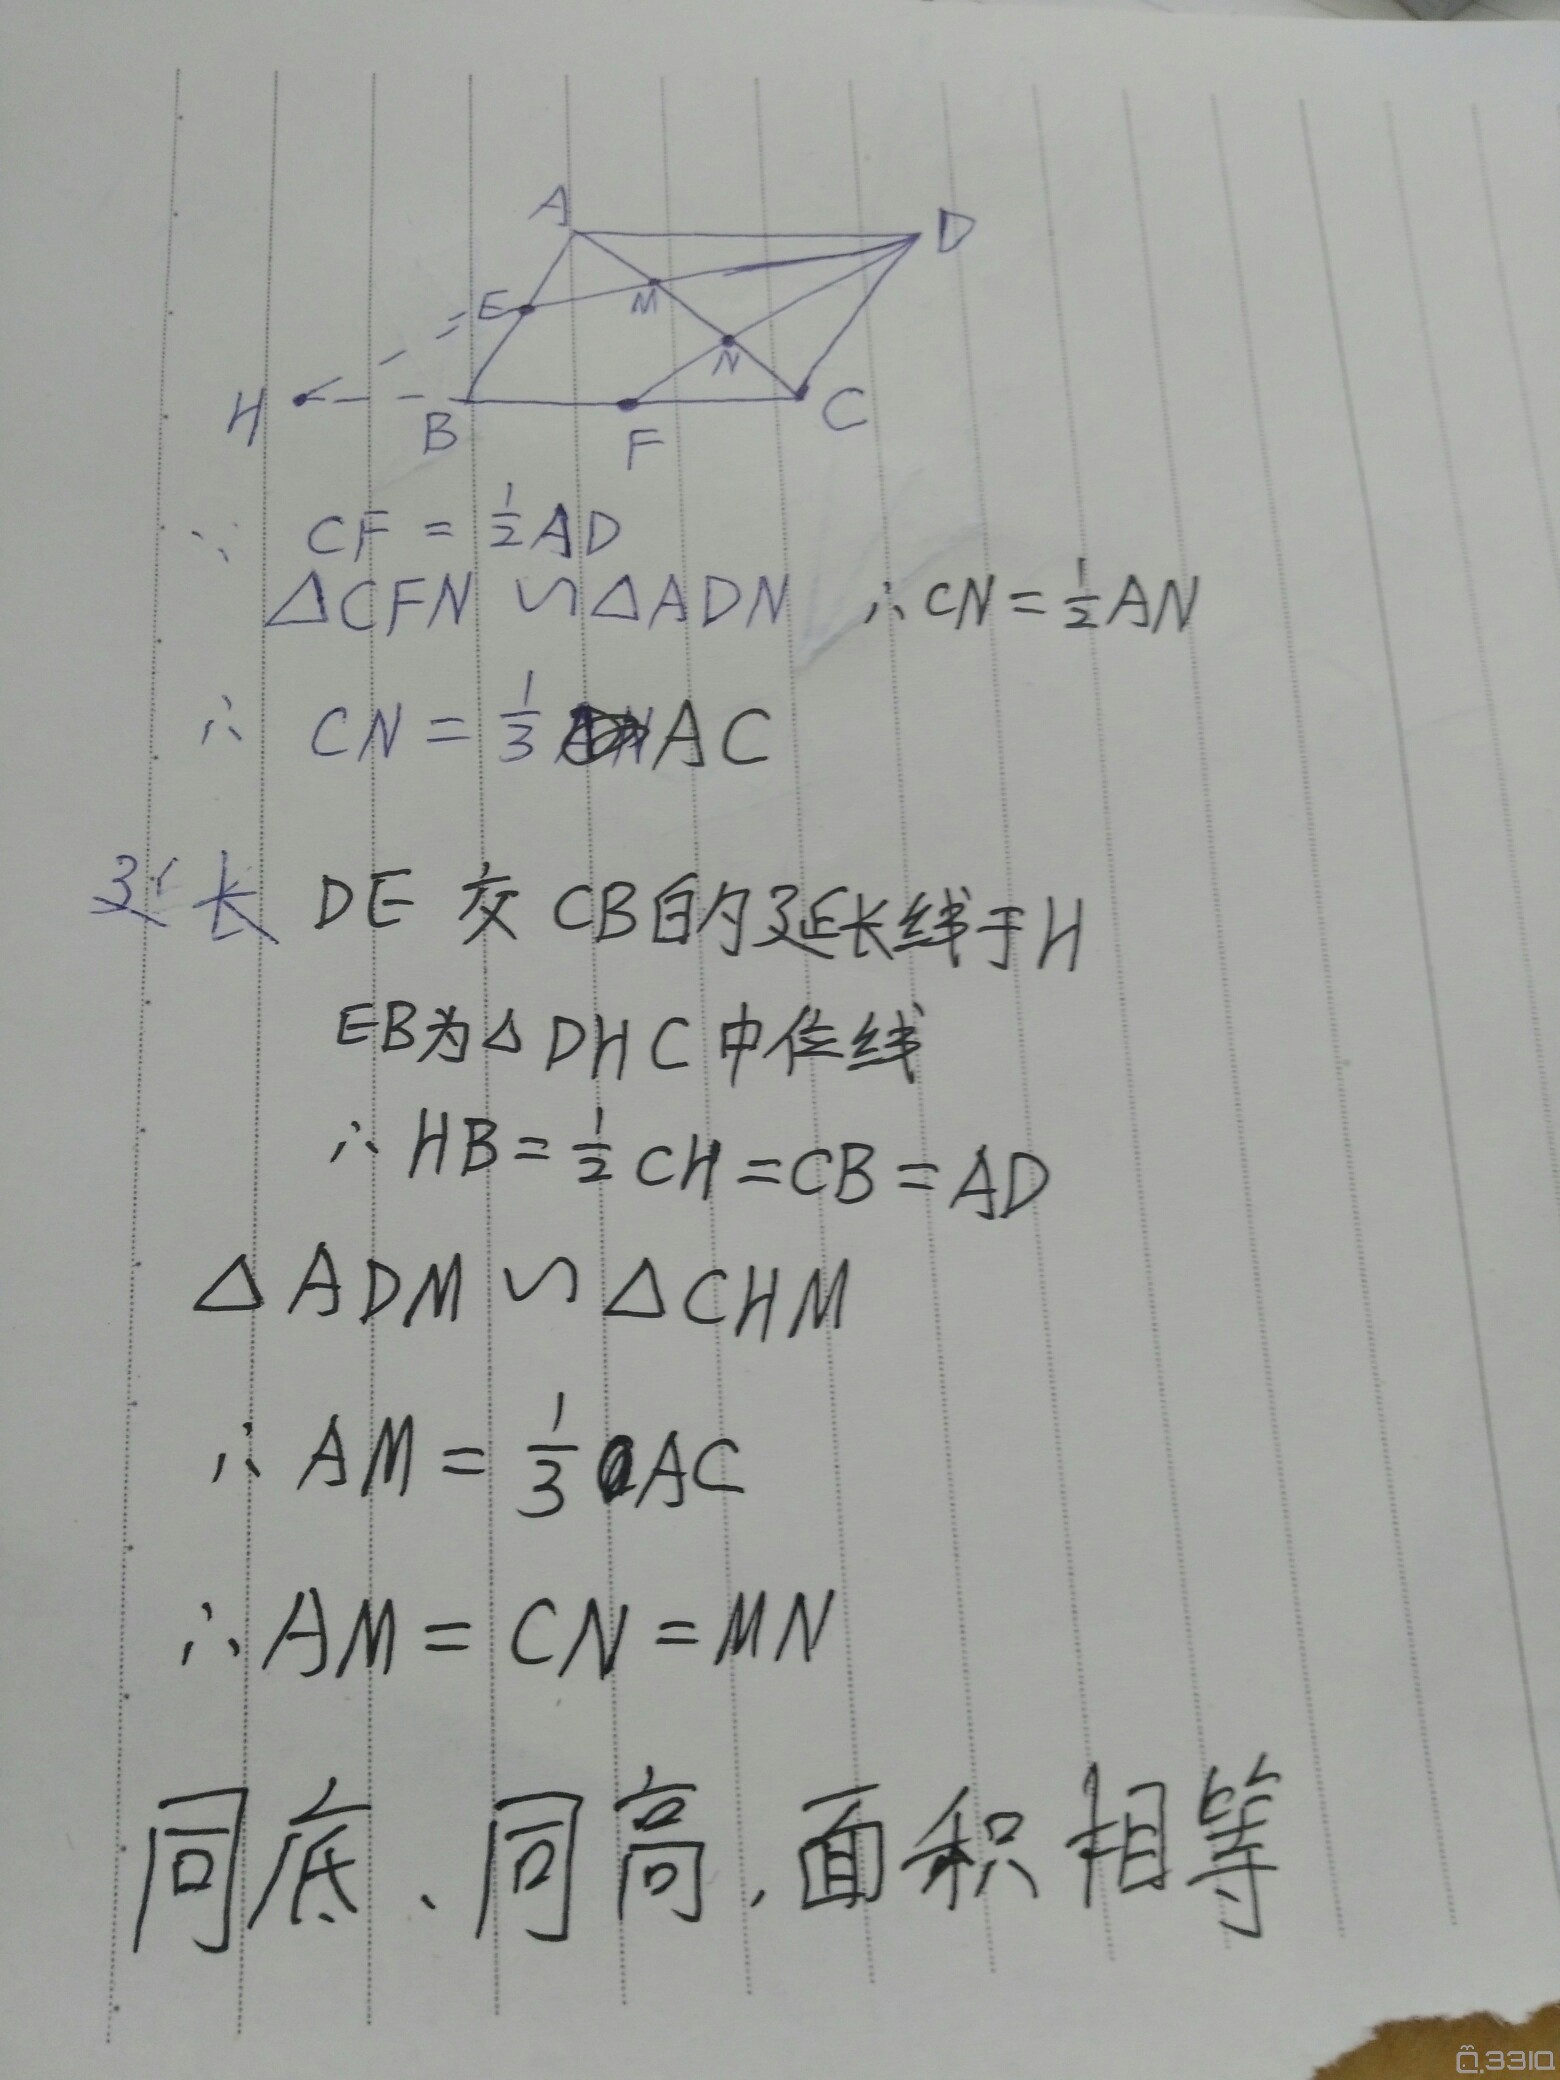 A D
E M
N
H B F C
∵ CF = 1/2 AD
△CFN ∽ △ADN ∴ CN = 1/2 AN
∴ CN = 1/3 AC
延长 DE 交 CB的延长线于H
EB为△DHC中位线
∴ HB = 1/2 CH = CB = AD
△ADM ∽ △CHM
∴ AM = 1/3 AC
∴ AM = CN = MN
同底、同高,面积相等
Q.33IQ